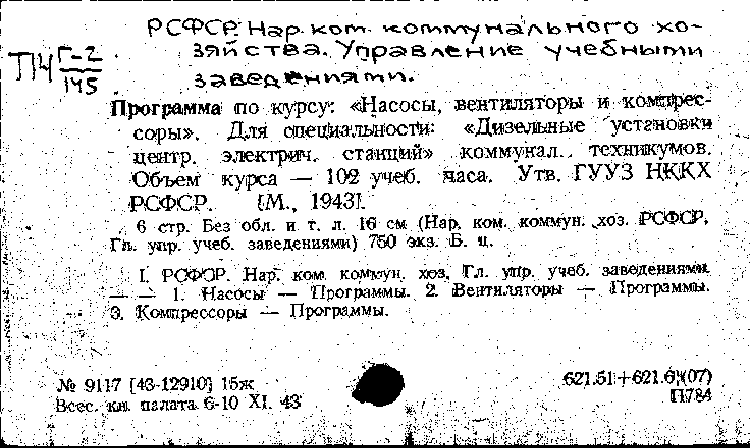 РСФСР. Нар. ком. коммунального хо-
зяйства. Управление учебными
заведениями.
ПЧ Г-2
145
Программа по курсу: «Насосы, вентиляторы и компрес-
соры». Для специальности: «Дизельные установки
центр. электрич. станций» коммунал. техникумов.
Объем курса — 102 учеб. часа. Утв. ГУУЗ НККХ
РСФСР. [М., 1943].
6 стр. Без обл. и т. л. 16 см (Нар. ком. коммун. хоз. РСФСР,
Гл. упр. учеб. заведениями) 750 экз. Б. ц.
I. РСФСР. Нар. ком. коммун. хоз. Гл. упр. учеб. заведениями.
— — 1. Насосы — Программы. 2. Вентиляторы — Программы.
3. Компрессоры — Программы.
№ 9117 [43-12910] 15ж
621.51+621.6](07)
Всес. кн. палата 6-10 XI. 43
П784